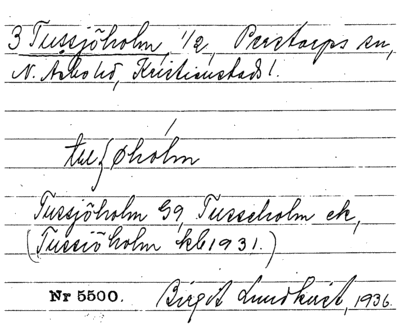 3 Tussjöholm, 1/2, Perstorps sn,
N. Åsbohd, Kristianstads l.
tu⸨øhólm
Tussjöholm G9, Tusseholm ek,
(Tussiöholm kb 1931.)
Nr 5500. Birgit Lundkvist, 1936.